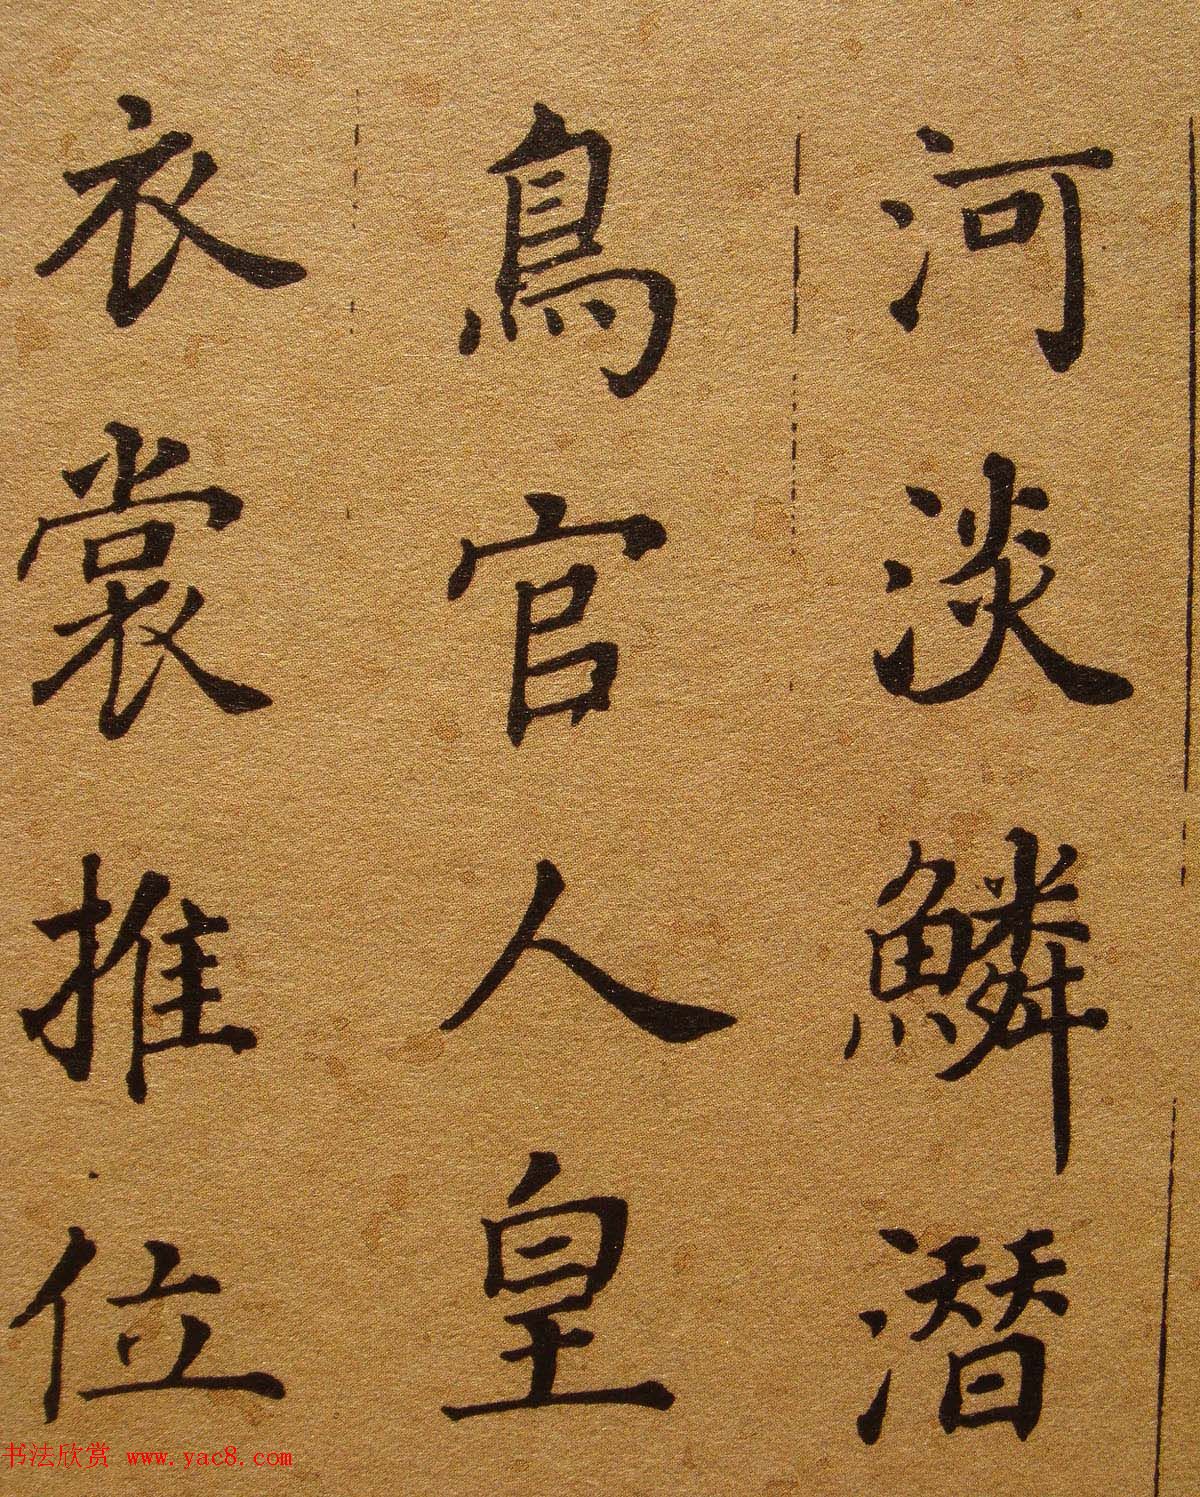 河淡鱗潛
鳥官人皇
衣裳推位
书法欣赏 www.yac8.com